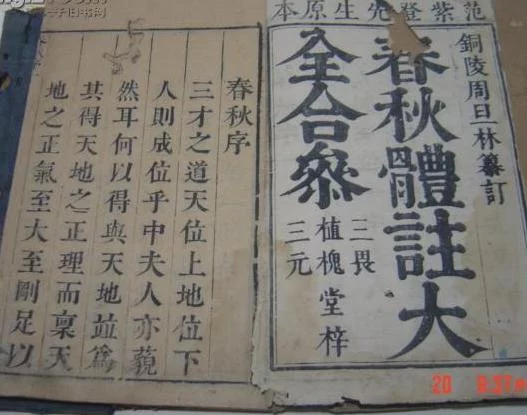 范紫登先生原本
銅陵周旦林纂訂
春秋體註大
全合參
三畏
植槐堂梓
三元
春秋序
三才之道天位上地位下
人則成位乎中夫人亦藐
然耳何以得與天地竝爲
其得天地之正理而稟天
地之正氣至大至剛足以
20